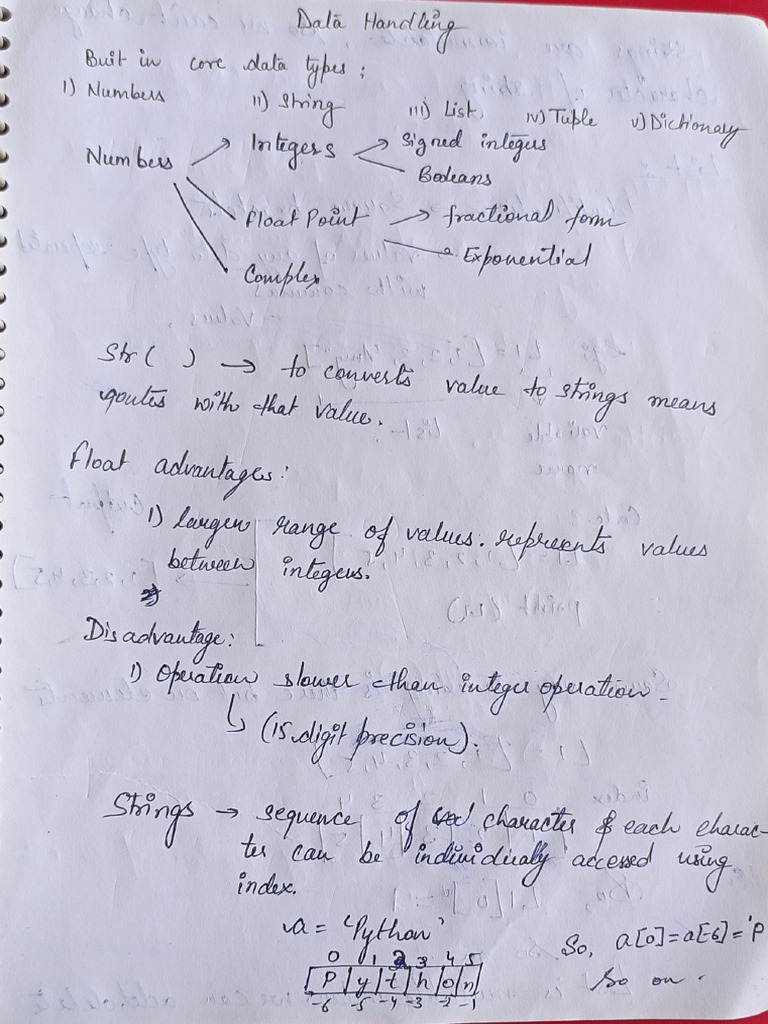 Data Handling
Buit in core data types :
i) Numbers ii) String iii) List, iv) Tuple v) Dictionary
Numbers → Integers → Signed integers
Booleans
Float Point → fractional form
→ Exponential
Complex
Str( ) → to converts value to strings means
qoutes with that value.
Float advantages :
1) larger range of values. represents values
between integers.
Disadvantage :
1) Operation slower than integer operation.
↳ (15-digit precision).
Strings → sequence of character & each charac-
ter can be individually accessed using
index.
a = 'Python'
0 1 2 3 4 5
P y t h o n
-6 -5 -4 -3 -2 -1
So, a[0]=a[-6]='P
So on.